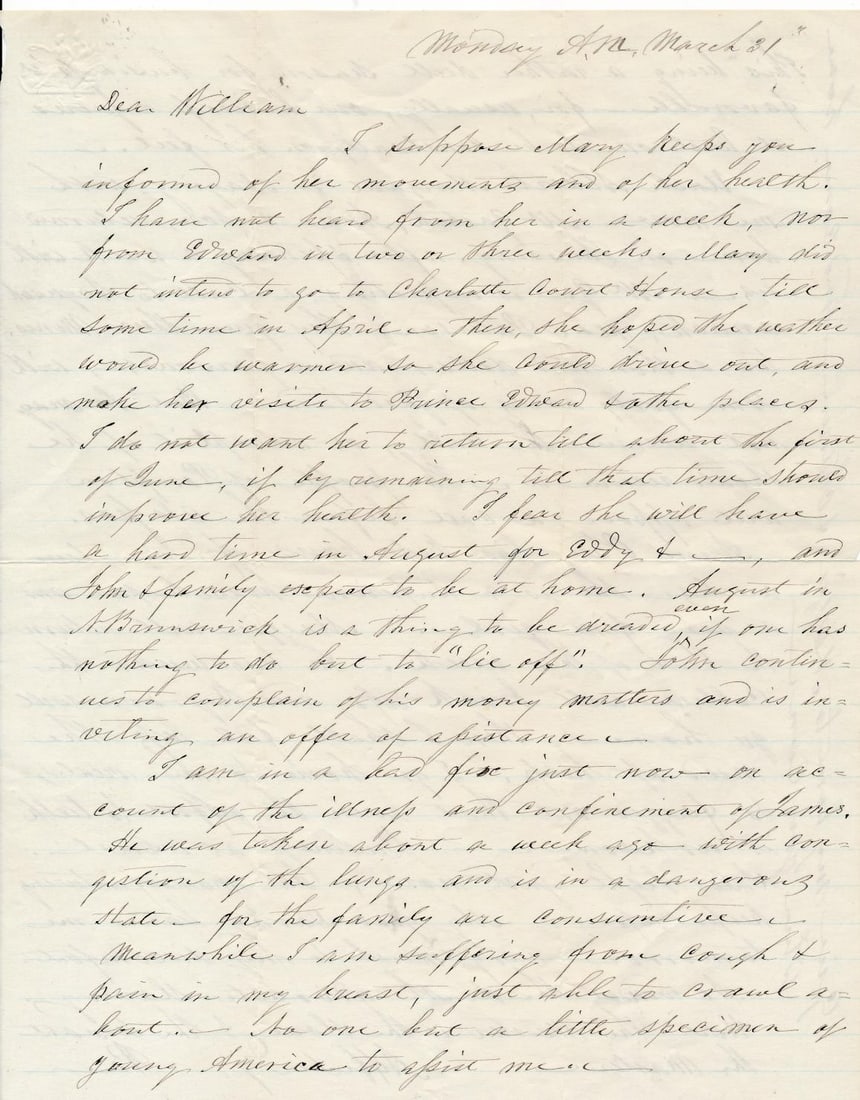 Monday A.M. March 31"
Dear William
I suppose Mary keeps you
informed of her movements and of her health.
I have not heard from her in a week, nor
from Edward in two or three weeks. Mary did
not intend to go to Charlotte Court House till
some time in April – then, she hoped the wather
would be warmer so she could drive out, and
make her visits to Prince Edward & other places.
I do not want her to return till about the first
of June, if by remaining till that time should
improve her health. I fear she will have
a hard time in August for Eddy & —, and
John & family expect to be at home. August in
N. Brunswick is a thing to be dreaded, even if one has
nothing to do but to "lie off". John contin=
ues to complain of his money matters and is in=
viting an offer of assistance –
I am in a bad fix just now on ac=
count of the illness and confinement of James.
He was taken about a week ago with con=
gestion of the lungs and is in a dangerous
state – for the family are consumtive –
Meanwhile I am suffering from cough &
pain in my breast, just able to crawl a=
bout. – No one but a little specimen of
young America to assist me. –